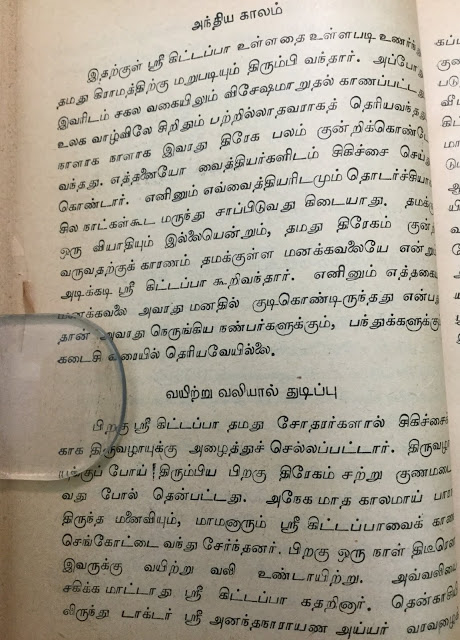 அந்திய காலம்
இதற்குள் ஸ்ரீ கிட்டப்பா உள்ளதை உள்ளபடி உணர்ந்து
தமது கிராமத்திற்கு மறுபடியும் திரும்பி வந்தார். அப்போது
இவரிடம் சகல வகையிலும் விசேஷமாறுதல் காணப்பட்டது
உலக வாழ்விலே சிறிதும் பற்றில்லாதவராகத் தெரியவந்தது
நாளாக நாளாக இவரது திரேக பலம் குன்றிக்கொண்டே
வந்தது. எத்தனையோ வைத்தியர்களிடம் சிகிச்சை செய்து
கொண்டார். எனினும் எவ்வைத்தியரிடமும் தொடர்ச்சியாக
சில நாட்கள்கூட மருந்து சாப்பிடுவது கிடையாது. தமக்கு
ஒரு வியாதியும் இல்லையென்றும், தமது திரேகம் குன்றி
வருவதற்குக் காரணம் தமக்குள்ள மனக்கவலையே என்று
அடிக்கடி ஸ்ரீ கிட்டப்பா கூறிவந்தார். எனினும் எத்தகைய
மனக்கவலை அவரது மனதில் குடிகொண்டிருந்தது என்பது
தான் அவரது நெருங்கிய நண்பர்களுக்கும், பந்துக்களுக்கும்
கடைசி வரையில் தெரியவேயில்லை.
வயிற்று வலியால் துடிப்பு
பிறகு ஸ்ரீ கிட்டப்பா தமது சோதரர்களால் சிகிச்சைக்
காக திருவழாயுக்கு அழைத்துச் செல்லப்பட்டார். திருவழா
யுக்குப் போய் திரும்பிய பிறகு திரேகம் சற்று குணமடை
வது போல் தென்பட்டது. அநேக மாத காலமாய் பாரா
திருந்த மனைவியும், மாமனாரும் ஸ்ரீ கிட்டப்பாவைக் காண
செங்கோட்டை வந்து சேர்ந்தனர். பிறகு ஒரு நாள் திடீரென
இவருக்கு வயிற்று வலி உண்டாயிற்று. அவ்வலியை
சகிக்க மாட்டாது ஸ்ரீ கிட்டப்பா கதறினார். தென்காசியி
லிருந்து டாக்டர் ஸ்ரீ அனந்தநாராயண அய்யர் வரவழை